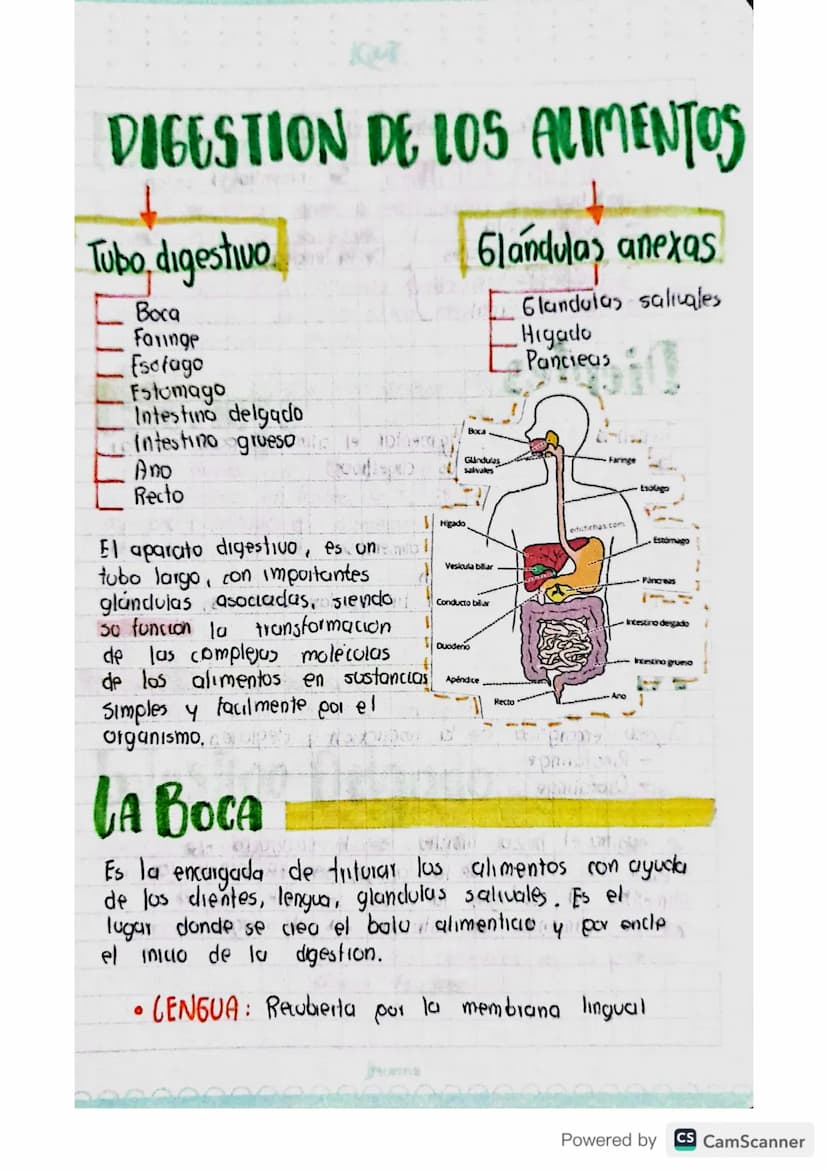 DIGESTION DE LOS ALIMENTOS
Tubo digestivo
Boca
Faringe
Esófago
Estomago
Intestino delgado
Intestino grueso
Ano
Recto
Glándulas anexas
Glandulas salivales
Higado
Pancreas
Boca
Glándulas
salivales
Faringe
Esófago
edufichas.com
Hígado
Estómago
Vesícula biliar
Páncreas
Conducto biliar
Intestino delgado
Duodeno
Intestino grueso
Apéndice
Recto
Ano
El aparato digestivo, es un
tubo largo, con importantes
glándulas asociadas, siendo
su función la transformacion
de las complejas moléculas
de los alimentos en sustancias
simples y facilmente por el
organismo.
LA BOCA
Es la encargada de triturar los alimentos con ayuda
de los dientes, lengua, glandulas salivales. Es el
lugar donde se crea el bolo alimenticio y por encle
el inicio de la digestion.
• LENGUA: Recubierta por la membrana lingual
Powered by CS CamScanner